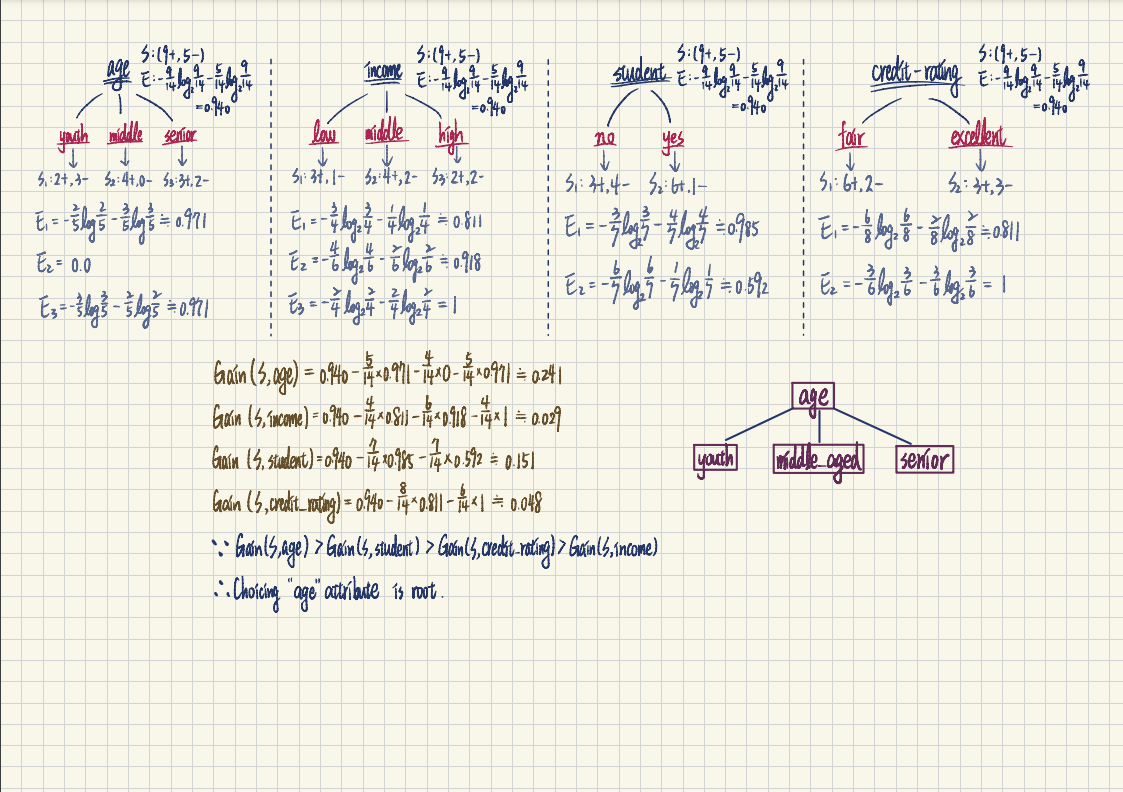 age
S:(9+,5-)
E:-9/14 log₂ 9/14 - 5/14 log₂ 9/14
=0.940
youth middle senior
S₁:2+,3- S₂:4+,0- S₃:3+,2-
E₁=-2/5 log 2/5 - 3/5 log 3/5 ≒ 0.971
E₂= 0.0
E₃=-3/5 log 3/5 - 2/5 log 2/5 ≒ 0.971
income
S:(9+,5-)
E:-9/14 log₂ 9/14 - 5/14 log₂ 9/14
=0.940
low middle high
S₁:3+,1- S₂:4+,2- S₃:2+,2-
E₁=-3/4 log₂ 3/4 - 1/4 log 1/4 ≒ 0.811
E₂=-4/6 log₂ 4/6 - 2/6 log₂ 2/6 ≒ 0.918
E₃=-2/4 log₂ 2/4 - 2/4 log₂ 2/4 = 1
student
S:(9+,5-)
E:-9/14 log₂ 9/14 - 5/14 log₂ 9/14
=0.940
no yes
S₁:3+,4- S₂:6+,1-
E₁=-3/7 log₂ 3/7 - 4/7 log₂ 4/7 ≒ 0.985
E₂=-6/7 log₂ 6/7 - 1/7 log₂ 1/7 ≒ 0.592
credit-rating
S:(9+,5-)
E:-9/14 log₂ 9/14 - 5/14 log₂ 9/14
=0.940
fair excellent
S₁:6+,2- S₂:3+,3-
E₁=-6/8 log₂ 6/8 - 2/8 log₂ 2/8 ≒ 0.811
E₂=-3/6 log₂ 3/6 - 3/6 log₂ 3/6 = 1
Gain(S,age) = 0.940 - 5/14×0.971 - 4/14×0 - 5/14×0.971 ≒ 0.241
Gain(S,income)=0.940 - 4/14×0.811 - 6/14×0.918 - 4/14×1 ≒ 0.029
Gain(S,student)=0.940 - 7/14×0.985 - 7/14×0.592 ≒ 0.151
Gain(S,credit_rating)=0.940 - 8/14×0.811 - 6/14×1 ≒ 0.048
∵ Gain(S,age) > Gain(S,student) > Gain(S,credit_rating) > Gain(S,income)
∴ Choicing "age" attribute is root.
age
youth middle_aged senior